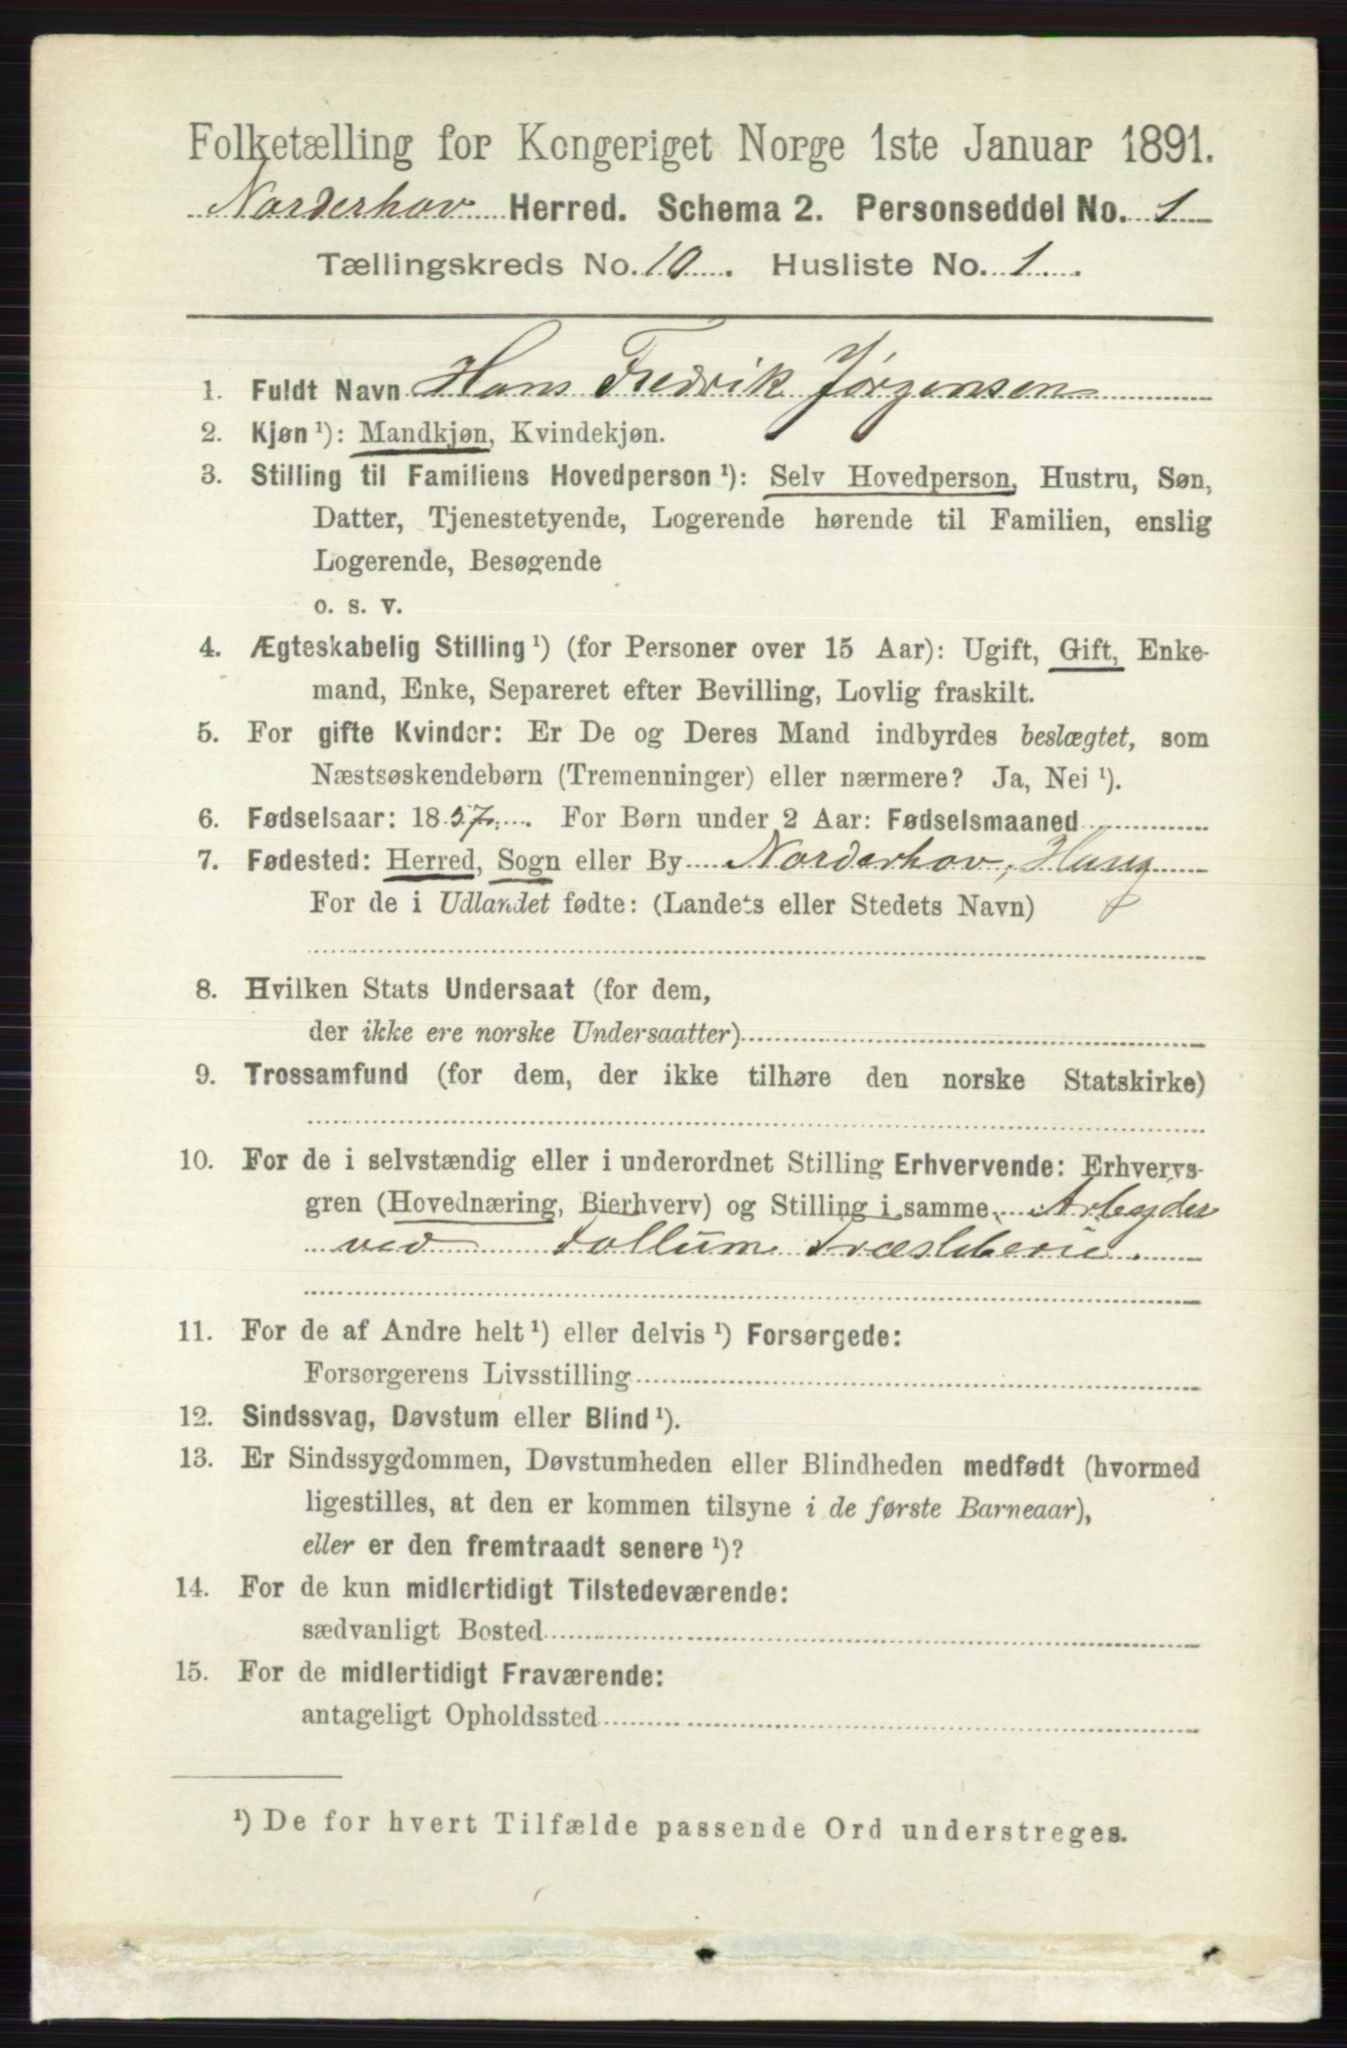 Folketælling for Kongeriget Norge 1ste Januar 1891.
Norderhov Herred. Schema 2. Personseddel No. 1
Tællingskreds No. 10. Husliste No. 1.
1. Fuldt Navn Hans Fredrik Jörgensen
2. Kjøn ¹): Mandkjøn, Kvindekjøn.
3. Stilling til Familiens Hovedperson ¹): Selv Hovedperson, Hustru, Søn,
Datter, Tjenestetyende, Logerende hørende til Familien, enslig
Logerende, Besøgende
o. s. v.
4. Ægteskabelig Stilling ¹) (for Personer over 15 Aar): Ugift, Gift, Enke-
mand, Enke, Separeret efter Bevilling, Lovlig fraskilt.
5. For gifte Kvinder: Er De og Deres Mand indbyrdes beslægtet, som
Næstsøskendebørn (Tremenninger) eller nærmere? Ja, Nei ¹).
6. Fødselsaar: 1857. For Børn under 2 Aar: Fødselsmaaned
7. Fødested: Herred, Sogn eller By Norderhov, Haug
For de i Udlandet fødte: (Landets eller Stedets Navn)
8. Hvilken Stats Undersaat (for dem,
der ikke ere norske Undersaatter)
9. Trossamfund (for dem, der ikke tilhøre den norske Statskirke)
10. For de i selvstændig eller i underordnet Stilling Erhvervende: Erhvervs-
gren (Hovednæring, Bierhverv) og Stilling i samme Arbejder
ved Follum Træsliberie.
11. For de af Andre helt ¹) eller delvis ¹) Forsørgede:
Forsørgerens Livsstilling
12. Sindssvag, Døvstum eller Blind ¹).
13. Er Sindssygdommen, Døvstumheden eller Blindheden medfødt (hvormed
ligestilles, at den er kommen tilsyne i de første Barneaar),
eller er den fremtraadt senere ¹)?
14. For de kun midlertidigt Tilstedeværende:
sædvanligt Bosted
15. For de midlertidigt Fraværende:
antageligt Opholdssted
¹) De for hvert Tilfælde passende Ord understreges.